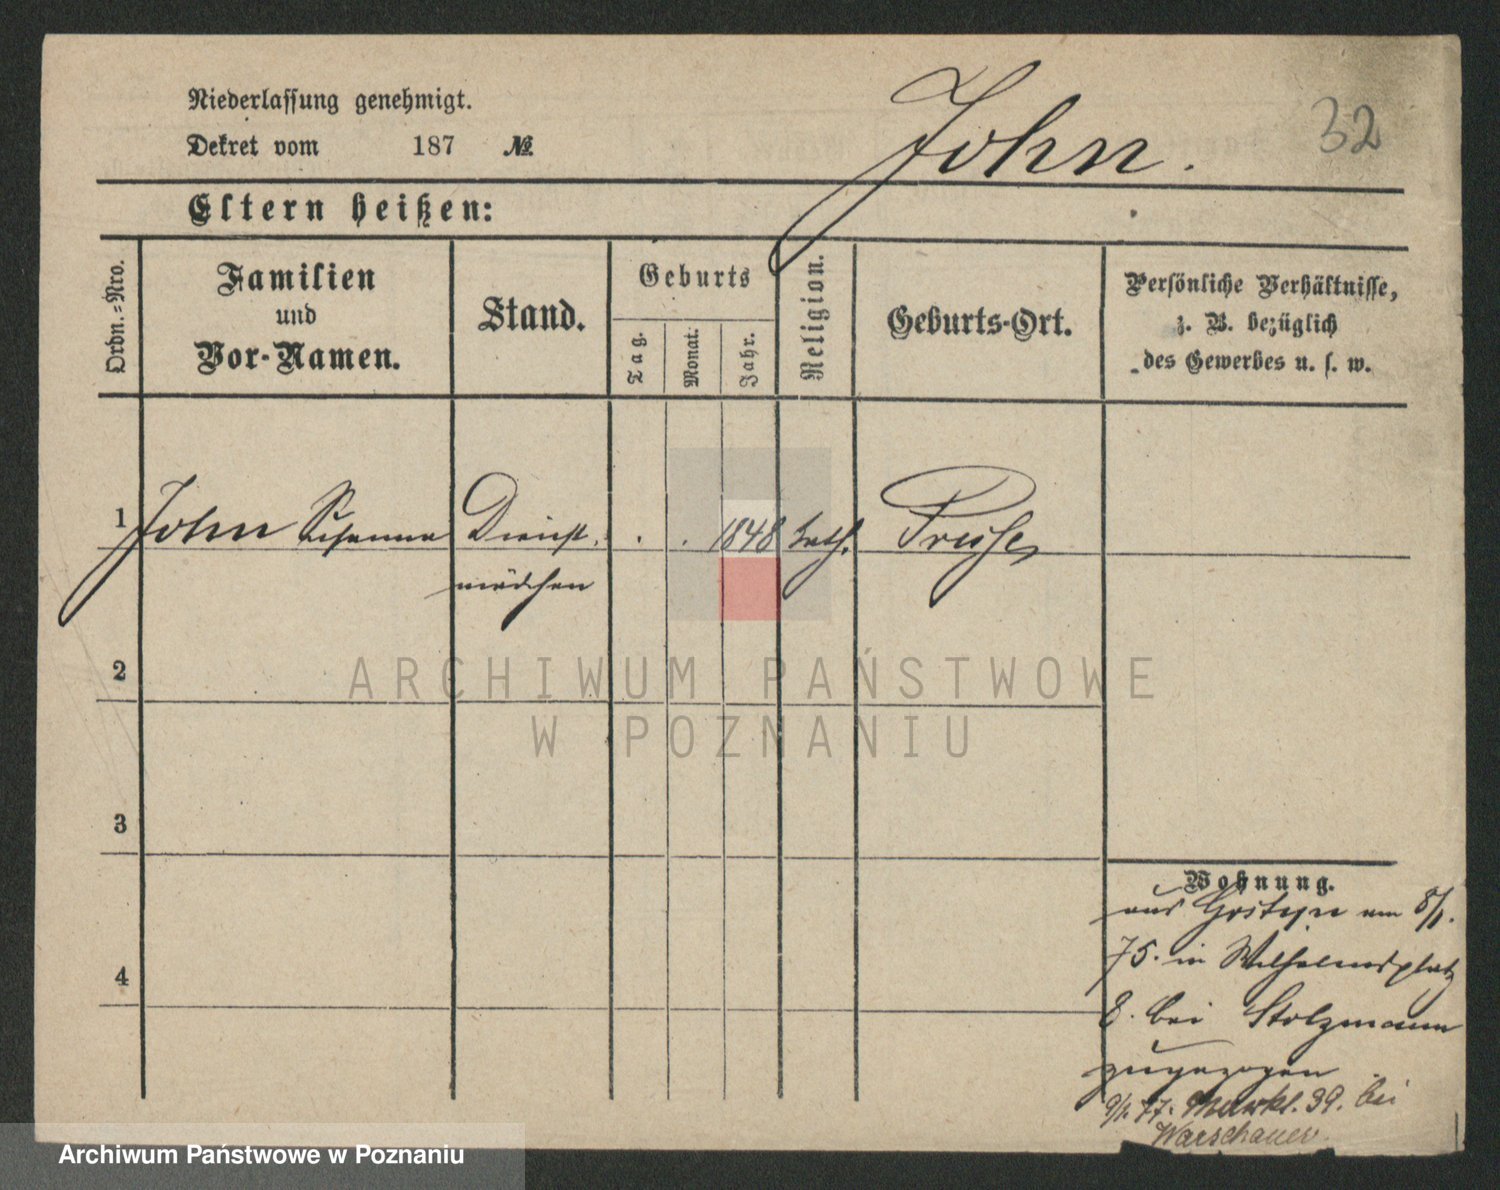 John.
32
Niederlassung genehmigt.
Dekret vom 187 №
Eltern heißen:
Ordn.-Nro.
Familien
und
Vor-Namen.
Stand.
Geburts
Tag.
Monat.
Jahr.
Religion.
Geburts-Ort.
Persönliche Verhältnisse,
z. B. bezüglich
des Gewerbes u. s. w.
1 John Susanna Dienst. . . 1848 kath.
mädchen
2
3
4
ARCHIWUM PAŃSTWOWE
W POZNANIU
Wohnung.
aus Gostyn am 8/1.
75. in Wilhelmsplatz
8. bei Stolzmann
zugezogen
9/1. 77. Markt. 39. bei
Warschauer.
Archiwum Państwowe w Poznaniu